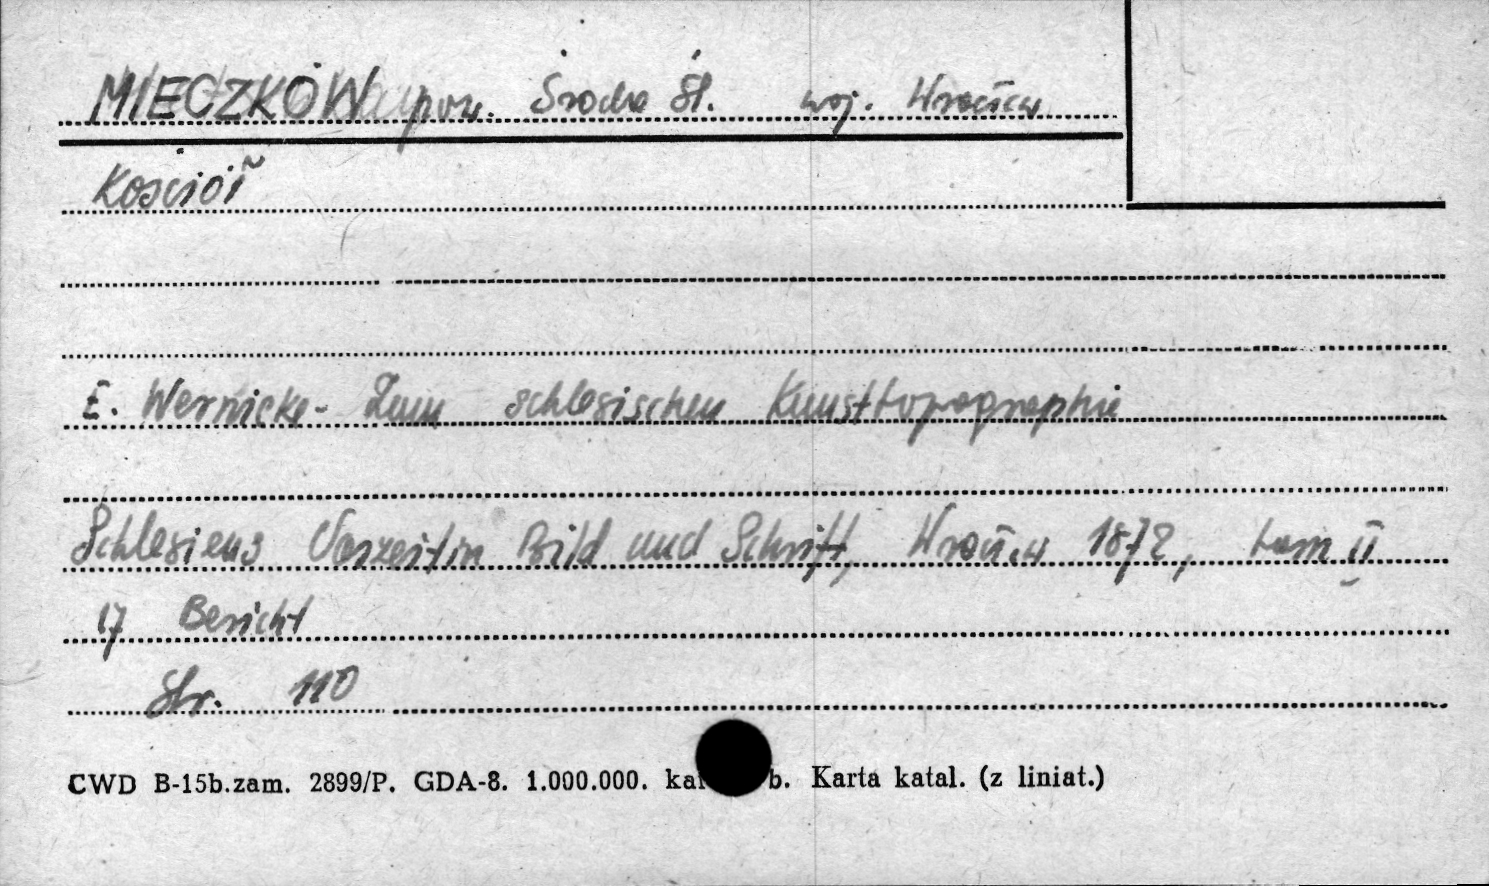 MIECZKÓW pow. Środa Śl. woj. Wrocław
Kościół
E. Wernicke - Zum schlesischen Kunsttopographie
Schlesiens Vorzeit in Bild und Schrift, Wrocław 1872, tom II
17 Bericht
Str. 110
CWD B-15b.zam. 2899/P. GDA-8. 1.000.000. b. Karta katal. (z liniat.)